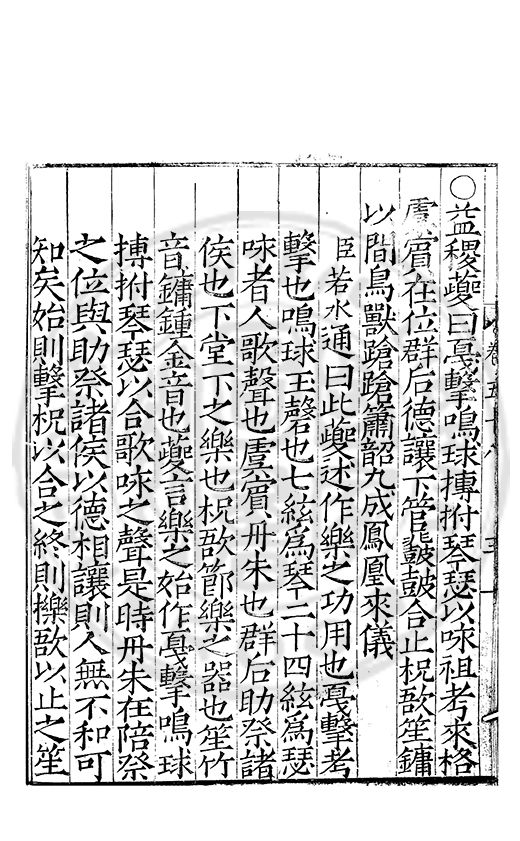 ○益稷夔曰戛擊鳴球搏拊琴瑟以咏祖考來格
虞賓在位群后德讓下管鼗鼓合止柷敔笙鏞
以間鳥獸蹌蹌簫韶九成鳳凰來儀
臣若水通曰此夔述作樂之功用也戛擊考
擊也鳴球玉磬也七絃為琴二十四絃為瑟
咏者人歌聲也虞賓丹朱也群后助祭諸
侯也下堂下之樂也柷敔節樂之器也笙竹
音鏞鍾金音也夔言樂之始作戛擊鳴球
搏拊琴瑟以合歌咏之聲是時丹朱在陪祭
之位與助祭諸侯以德相讓則人無不和可
知矣始則擊柷以合之終則擽敔以止之笙